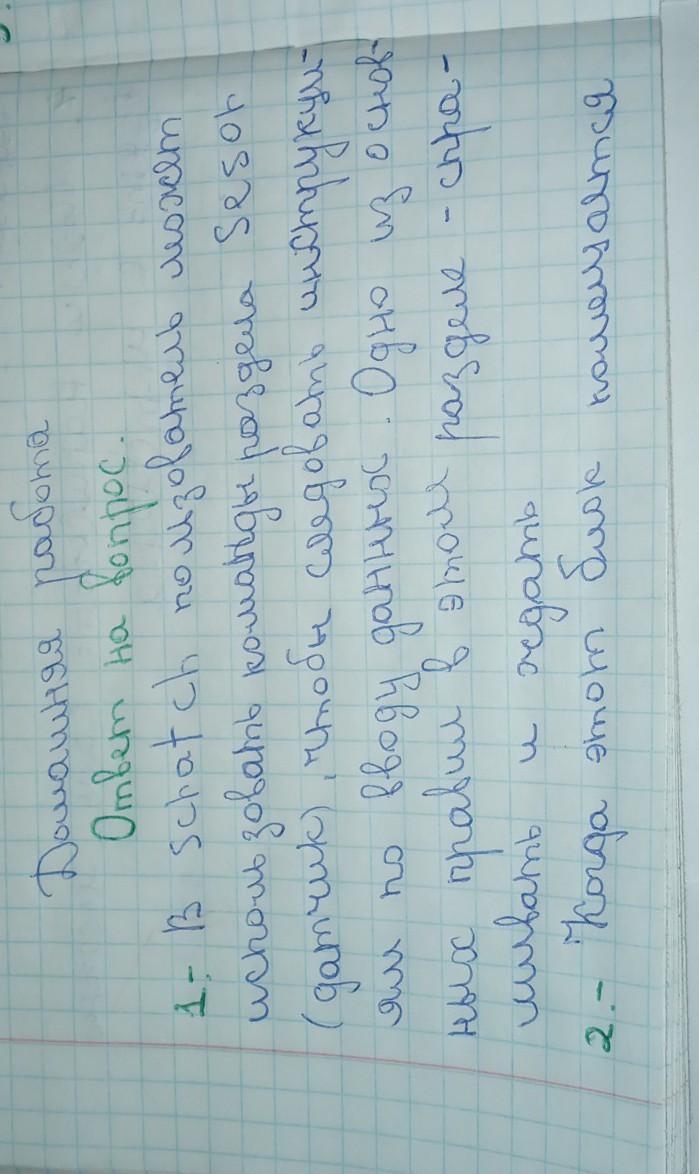 Домашняя работа
Ответ на вопрос.
1.- В Schatch пользователь может
использовать команды раздела Sesor
(датчик), чтобы следовать инструкци-
ям по вводу данных. Одно из основ-
ных правил в этом разделе - спра-
шивать и ждать
2.- Когда этот блок помещается